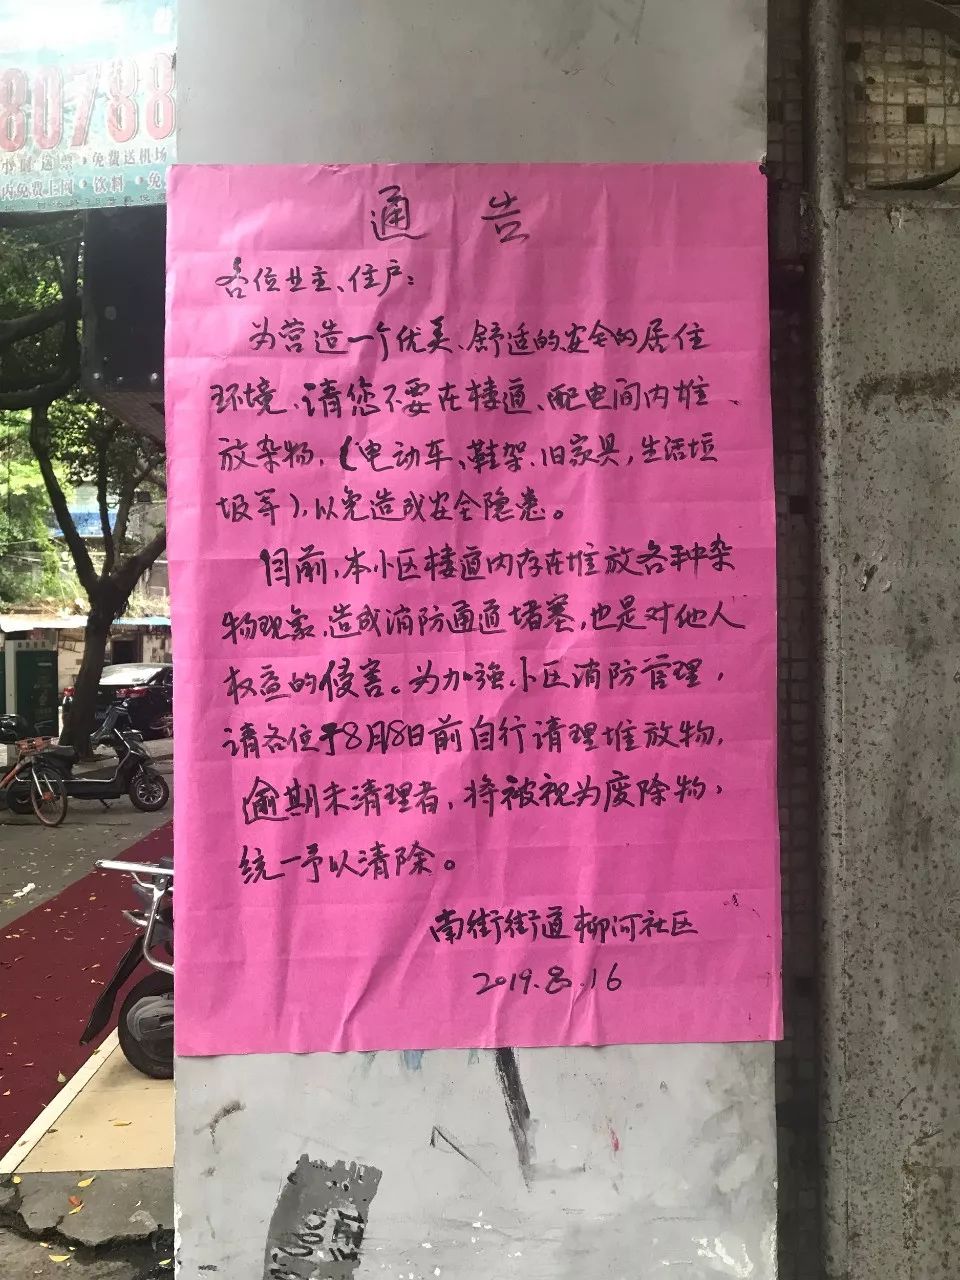 80788
免费送机场
内免费上网·饮料·免
通 告
各位业主、住户：
为营造一个优美、舒适的安全的居住
环境、请您不要在楼道、配电间内堆
放杂物，（电动车、鞋架、旧家具，生活垃
圾等），以免造成安全隐患。
目前，本小区楼道内存在堆放各种杂
物现象，造成消防通道堵塞，也是对他人
权益的侵害。为加强小区消防管理，
请各位于8月18日前自行清理堆放物，
逾期未清理者，将被视为废除物，
统一予以清除。
南街街道柳河社区
2019.8.16